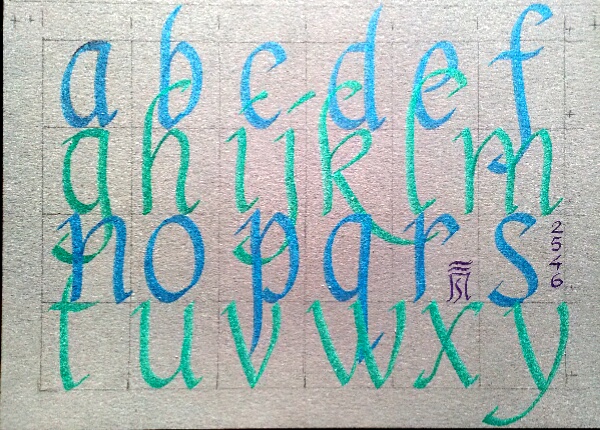 a b c d e f
g h i j k l m
n o p q r s
2546
t u v w x y